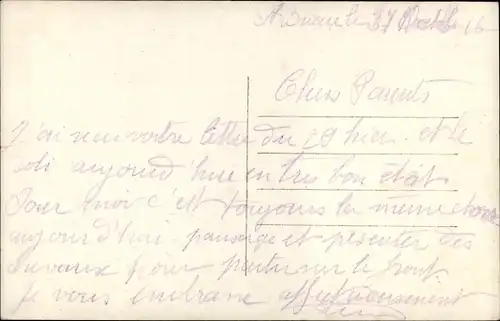 le 31 Octob 16
Chers Parents
J'ai recu votre lettre du 29 hier et le
coli aujourd'hui en tres bon état
Pour moi c'est toujours la meme chose
aujourd'hui pansage et présenter des
chevaux pour partir sur le front
Je vous embrasse affectueusement